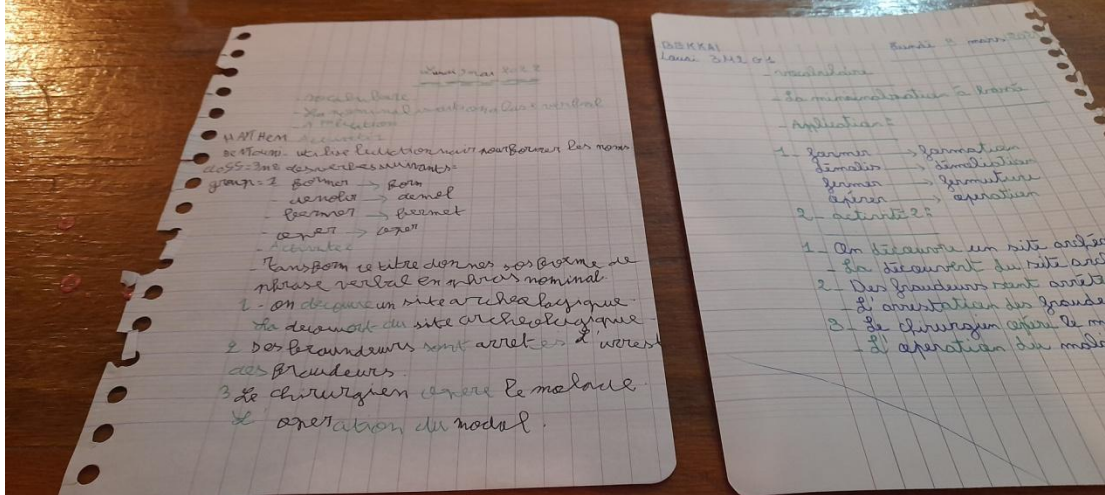 Lundi 9 mars 2022
vocabulaire
La nominalisation à base verbal
Activité 1
MATHEM
utilise le dictionnaire pour former les noms
class = 3m2 des verbes suivants =
group = 1 former → form
→ demol
fermer → fermet
oper → oper
- Activite 2
- Transform ce titre donnes sos forme de
phrase verbal en phras nominal.
1 - on decouvre un site archeologique.
La decouvert du site archeologique
2 Des fraundeurs sont arretes l'arrest
des fraudeurs
3 Le chirurgien opere le malade.
L' operation du modal.
BEKKAI
3M2 G1
Lundi 9 mars 202
- vocabulaire
- La nominalisation à
- Aplication =
1 - former → formation
démolir → démolition
fermer → fermuture
opérer → opération
2 - activité 2 =
1 - On découvre un site
- La découvert du site
2 - Des fraudeurs sont arrêté
- L'arrestation des fraude
3 - Le chirurgien opére le m
- L'opération du mala